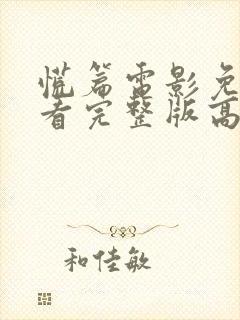 慌篇电影免
看完整版高
和佳敏